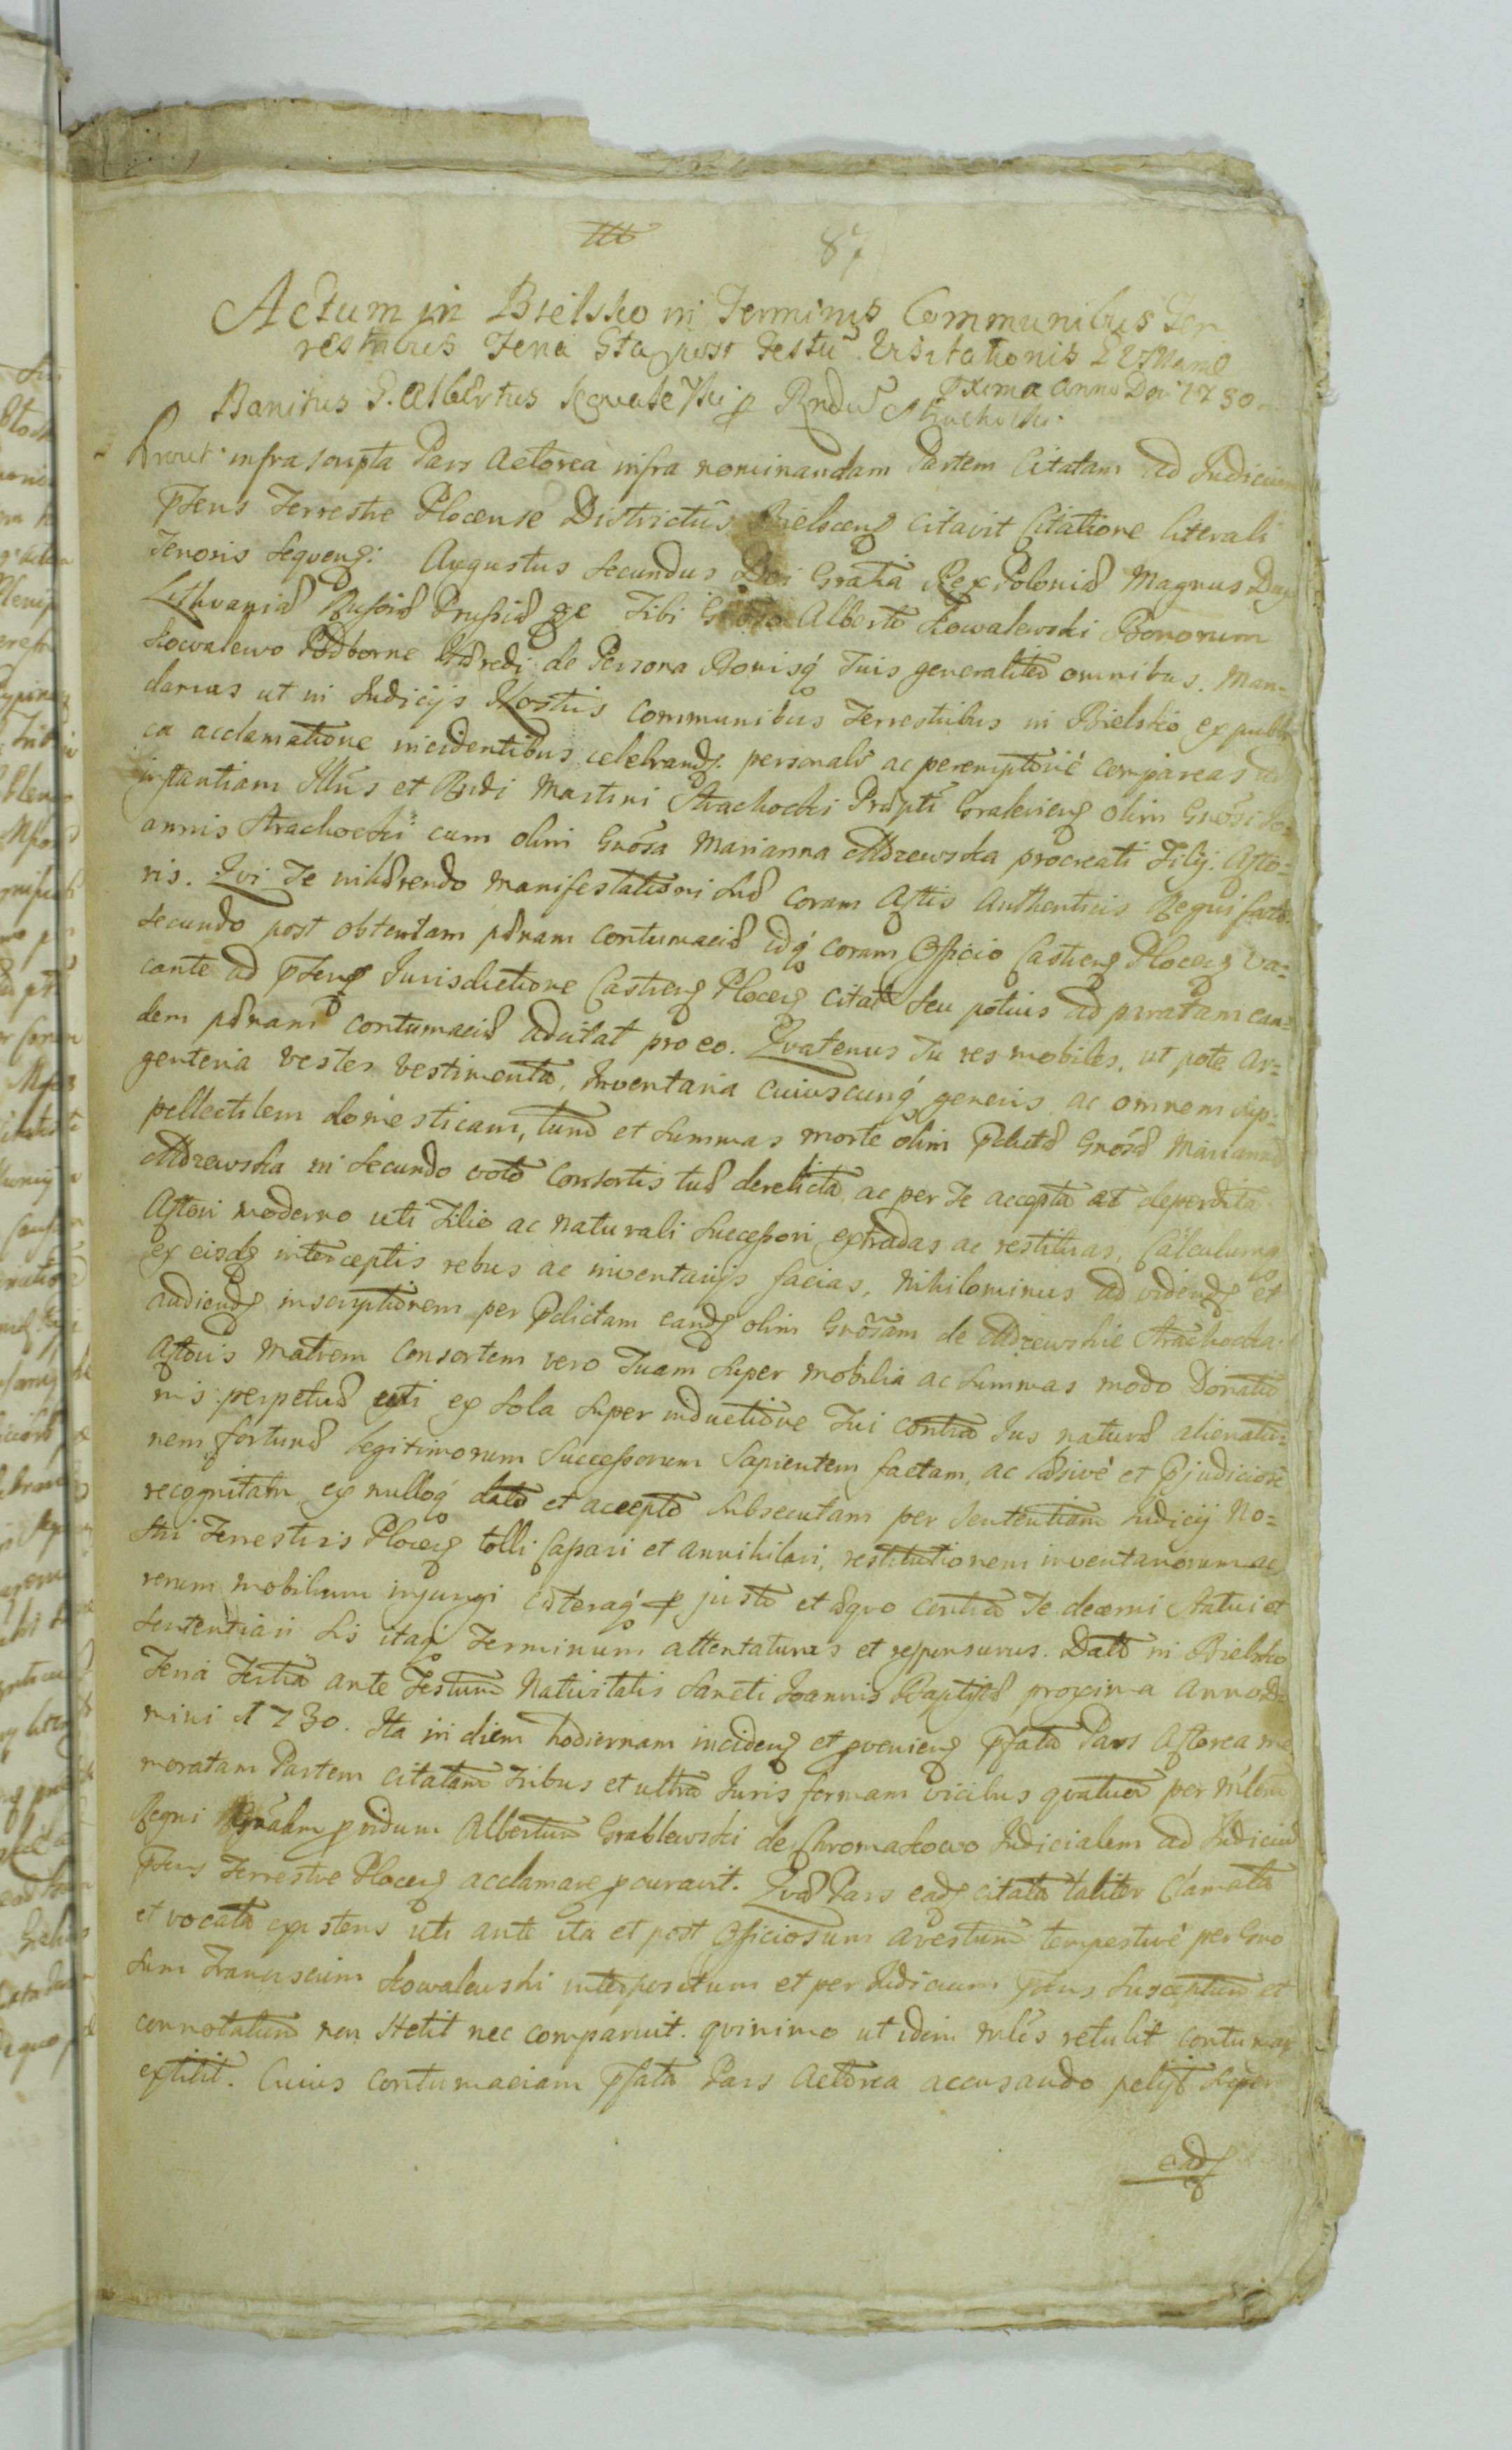 87
Actum in Bielsko in Terminis Communibus Ter
restribus Feria 6ta post Festū Visitationis B V Mariæ
Pxima Anno Dni 1730
Banitus G. Albertus Kowalewski p Rndū Strachocki
Prout infrascripta Pars Actorea infra nominandam Partem Citatam ad Judicium
pñens Terrestre Plocense Districtûs Bielscens citavit Citatione literali
Tenoris sequens: Augustus Secundus Dei Gratiâ Rex Poloniæ Magnus Dux
Lithvaniæ Russiæ Prussiæ &c Tibi Gnoso Alberto Kowalewski Bonorum
Kowalewo Podborne Hæredi de Persona Bonisq́ Tuis generaliter omnibus. Man-
damus ut in Judicijs Nostris Communibus Terrestribus in Bielsko ex publi
ca acclamatione incidentibus celebrand. personalr ac peremptoriè compareas ad
instantiam Illris et Rndi Martini Strachocki Præpti Graleviens olim Gnosi Jo=
annis Strachocki cum olim Gnosa Marianna Mdzewska procreati Filij. Acto=
ris. Qvi Te inhærendo manifestationi suæ coram Actis Authenticis Regni factæ
secundo post obtentam pænam contumaciæ idq́ coram Officio Castrens Plocens va=
cante ad pñens Jurisdictione Castrens Plocens citat seu potius ad paratam ean=
dem pænam contumaciæ adcitat pro eo. Qvatenus Tu res mobiles, ut pote ar=
genteria vestes vestimenta, Inventaria cuiuscunq́ generis ac omnem sup=
pellectilem domesticam, tum et summas morte olim pdictæ Gnosæ Mariannæ
Mdzewska in secundo voto Consortis tuæ derelicta, ac per Te accepta et deperdita
Actori moderno uti Filio ac naturali successori extradas ac restituas, Calculumq́
ex eisdem interceptis rebus ac inventarijs facias, nihilominus ad videndum et
audiendum inscriptionem per pdictam eandem olim Gnosam de Mdzewskie Strachocka
Actoris Matrem Consortem vero Tuam super mobilia ac summas modo Donatio
nis perpetuæ uti ex sola super inductione Tui contra Jus naturæ alienatio=
nem fortunæ legitimorum Successorum sapientem factam, ac læsivè et pjudiciosè
recognitam ex nulloq́ dato et accepto subsecutam per sententiam Judicij No=
stri Terrestris Plocens tolli Cassari et annihilari, restitutionem inventariorum ac
rerum mobilium injungi cæteraq́ p justo et æquo contra Te decerni statui et
sententiari sis itaq́ Terminum attentaturus et responsurus. Datt in Bielsko
Feria Tertia ante Festum Nativitatis Sancti Joannis Baptistæ proxima Anno Do
mini 1730. Ita in diem hodiernam incidens et pveniens pfata Pars Actorea me
moratam Partem citatam tribus et ultra Juris formam vicibus qvatuor per Mlem
Regni Gnalem pvidum Albertum Grablewski de Chromakowo Judicialem ad Judicium
pñens Terrestre Plocens acclamare pcuravit. Qvæ Pars eadem citata taliter clamata
et vocata existens uti ante ita et post Officiosum arestum tempestivè per Gno
sum Franciscum Kowalewski interpositum et per Judicium pñens susceptum et
connotatum non stetit nec comparuit. qvinimo ut idem Mles retulit contumax
extitit. Cuius contumaciam pfata Pars Actorea accusando petijt super
eadem